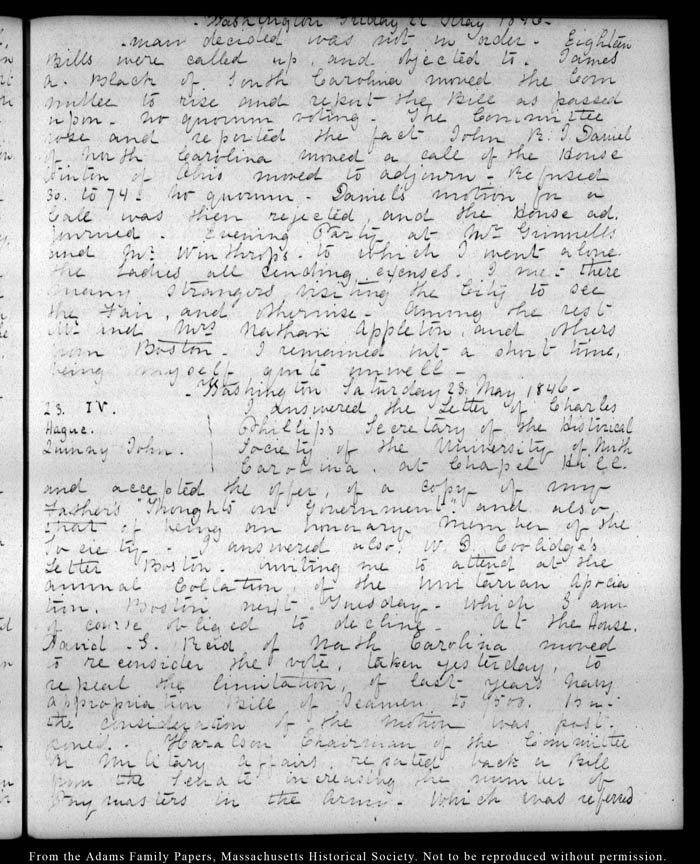 Washington Friday 22 May 1846-
-man decided was not in order- Eighteen
Bills were called up, and objected to. James
A. Black of South Carolina moved the Com
mittee to rise and report the Bill as passed
upon- no quorum voting- The Committee
rose and reported the fact John R. J. Daniel
of North Carolina moved a call of the House
Vinton of Ohio moved to adjourn- Refused
30. to 74- no quorum- Daniel's motion for a
Call was then rejected, and the House ad.
journed- Evening Party at Mr Grinnell's
and Mr Winthrop's- to which I went alone
the Ladies all sending excuses. I met there
many strangers visiting the City to see
the Fair, and otherwise- Among the rest
Mr and Mrs Nathan Appleton, and others
from Boston- I remained but a short time,
being myself quite unwell-
-Washington Saturday 23. May 1846-
23. IV. I answered the Letter of Charles
Hague. Phillips Secretary of the Historical
Quinny John. Society of the University of North
Carolina, at Chapel Hill.
and accepted the offer, of a copy of my
Father's "Thoughts on Government" and also
that of being an honorary member of the
Society- I answered also. W. D. Coolidge's
Letter Boston- inviting me to attend at the
annual Collation, of the Unitarian Associa
tion. Boston next Tuesday- which I am
of course obliged to decline- At the House.
David S. Reid of North Carolina moved
to reconsider the vote, taken yesterday, to
repeal the limitation, of last years Navy
appropriation Bill of Seamen to 7500. But
the consideration of the motion was post-
poned- Haralson Chairman of the Committee
on Military affairs, reported back a Bill
from the Senate increasing the number of
Paymasters in the Army- Which was referred
From the Adams Family Papers, Massachusetts Historical Society. Not to be reproduced without permission.